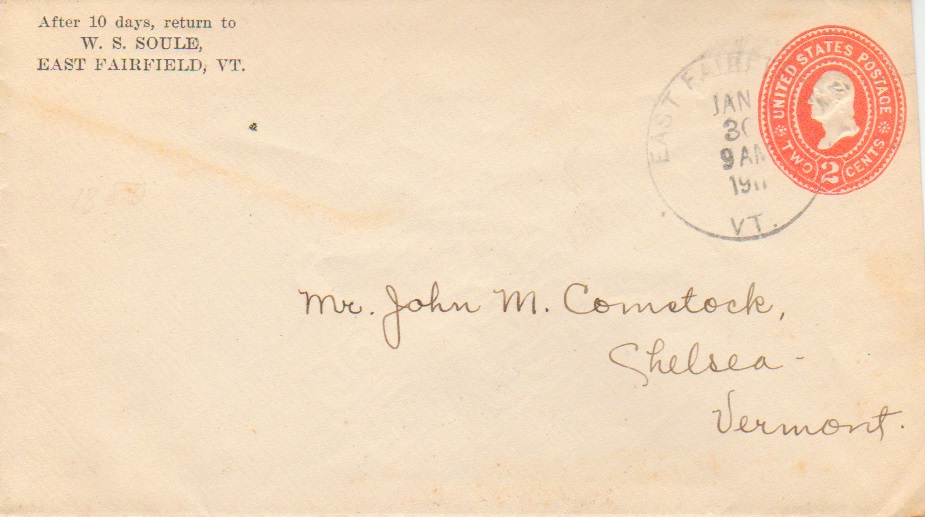 After 10 days, return to
W. S. SOULE,
EAST FAIRFIELD, VT.
UNITED STATES POSTAGE
TWO 2 CENTS
EAST
JAN
9 AM
VT.
Mr. John M. Comstock,
Chelsea -
Vermont.